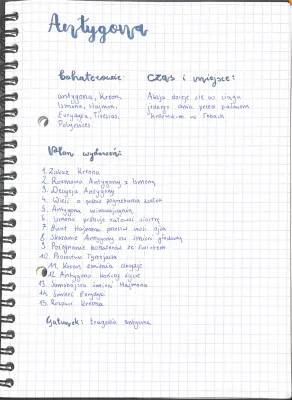 Antygona
bohaterowie:
antygona, Kreon,
Ismena, Hajmon,
Eurydyka, Tirezjas,
Polynejkes.
czas i miejsce:
Akcja dzieje się w ciągu
jednego dnia przed pałacem
królewskim w Tebach
Plan wydarzeń:
1. Zakaz Kreona
2. Rozmowa Antygony z Ismeną
3. Decyzja Antygony
4. Wieść o próbie pogrzebania zwłok
5. Antygona
6. Ismena próbuje ratować siostrę
7. Bunt Hajmona przeciw woli ojca
8. Skazanie Antygony na śmierć głodową
9. Pożegnanie bohaterki ze światem
10. Proroctwo Tyrezjasza
11. Kreon zmienia decyzję
12. Antygona kończy życie
13. Samobójcza śmierć Hajmona
14. Śmierć Eurydyki
15. Rozpacz Kreona
Gatunek: tragedia antyczna